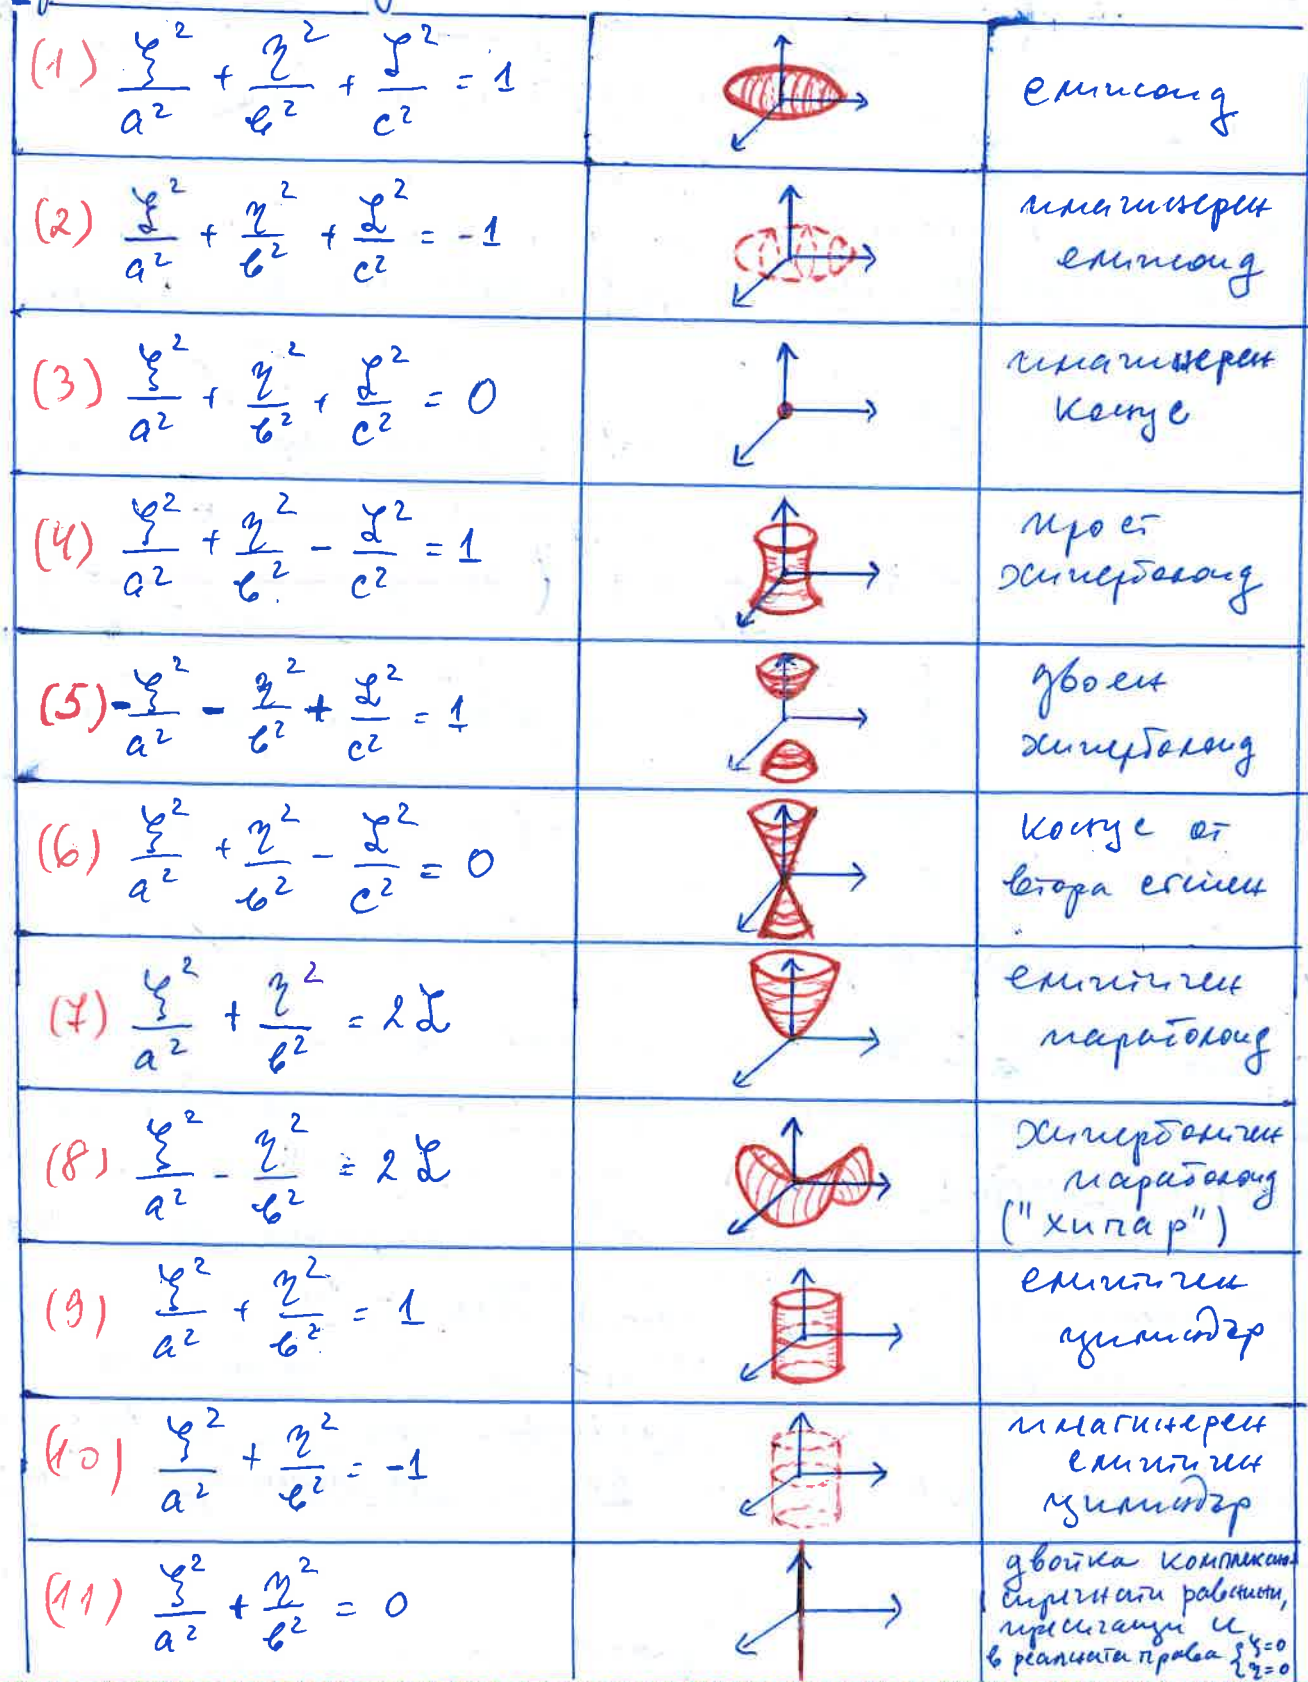 (1) ξ²/a² + η²/b² + ζ²/c² = 1
елипсоид
(2) ξ²/a² + η²/b² + ζ²/c² = -1
имагинерен
елипсоид
(3) ξ²/a² + η²/b² + ζ²/c² = 0
имагинерен
конус
(4) ξ²/a² + η²/b² - ζ²/c² = 1
прост
хиперболоид
(5) -ξ²/a² - η²/b² + ζ²/c² = 1
двоен
хиперболоид
(6) ξ²/a² + η²/b² - ζ²/c² = 0
конус от
втора степен
(7) ξ²/a² + η²/b² = 2ζ
елиптичен
параболоид
(8) ξ²/a² - η²/b² = 2ζ
хиперболичен
параболоид
("хипар")
(9) ξ²/a² + η²/b² = 1
елиптичен
цилиндър
(10) ξ²/a² + η²/b² = -1
имагинерен
елиптичен
цилиндър
(11) ξ²/a² + η²/b² = 0
двойка комплексно
спрегнати равнини,
пресичащи се
в реалната права {ξ=0
{η=0